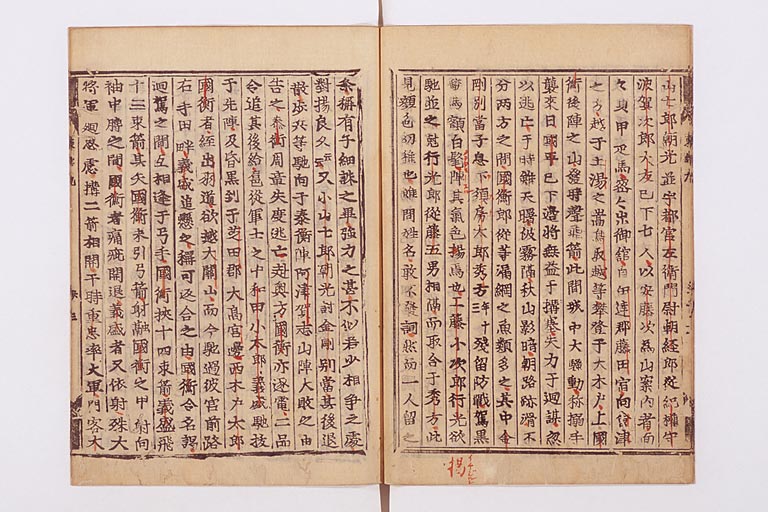 山七郎朝光並宇都宮左衛門尉朝綱郎從紀權守
波賀次郎大友已下七人以安藤次為山案內者面
々負甲疋馬密々出御舘自伊達郡藤田宿向會津
之方越于土湯之嵩鳥取越等攀登于大木戶上國
衡後陣之山發時聲飛箭此間城中大騷動稱搦手
襲來由國衡已下邊將無益于搆塞失力于廻謀忽
以逃亡于時雖天曙被霧隔秋山影暗朝路跡滑不
分兩方之間國衡郎從等漏網之魚類多之其中金
剛別當子息下須房太郎秀方年十三殘留防戰駕黑
駮馬額白髦陣其氣色揚焉也工藤小次郎行光欲
馳並之尅行光郎從藤五男相隔而取合于秀方此
見顏色幼稚也雖問姓名敢不發詞然而一人留之
楊
條稱有子細誅之畢強力之甚不似若少相爭之處
對揚良久云云又小山七郎朝光討金剛別當其後退
散武兵等馳向于泰衡陣阿津賀志山陣大敗之由
告之泰衡周章失度逃亡赴奧方國衡亦逐電二品
令追其後給扈從軍士之中和田小太郎義盛馳拔
于先陣及昏黑到于芝田郡大高宮邊西木戶太郎
國衡者經出羽道欲越大關山而今馳過彼宮前路
右手田畔義盛追懸之稱可返合之由國衡令名謁
廻駕之間互相逢于弓手國衡挾十四束箭義盛飛
十三束箭其矢國衡未引弓箭射融國衡之甲射向
袖中膊之間國衡者痛疵開退義盛者又依射殊大
將軍廻思慮搆二箭相開于時重忠率大軍門客大